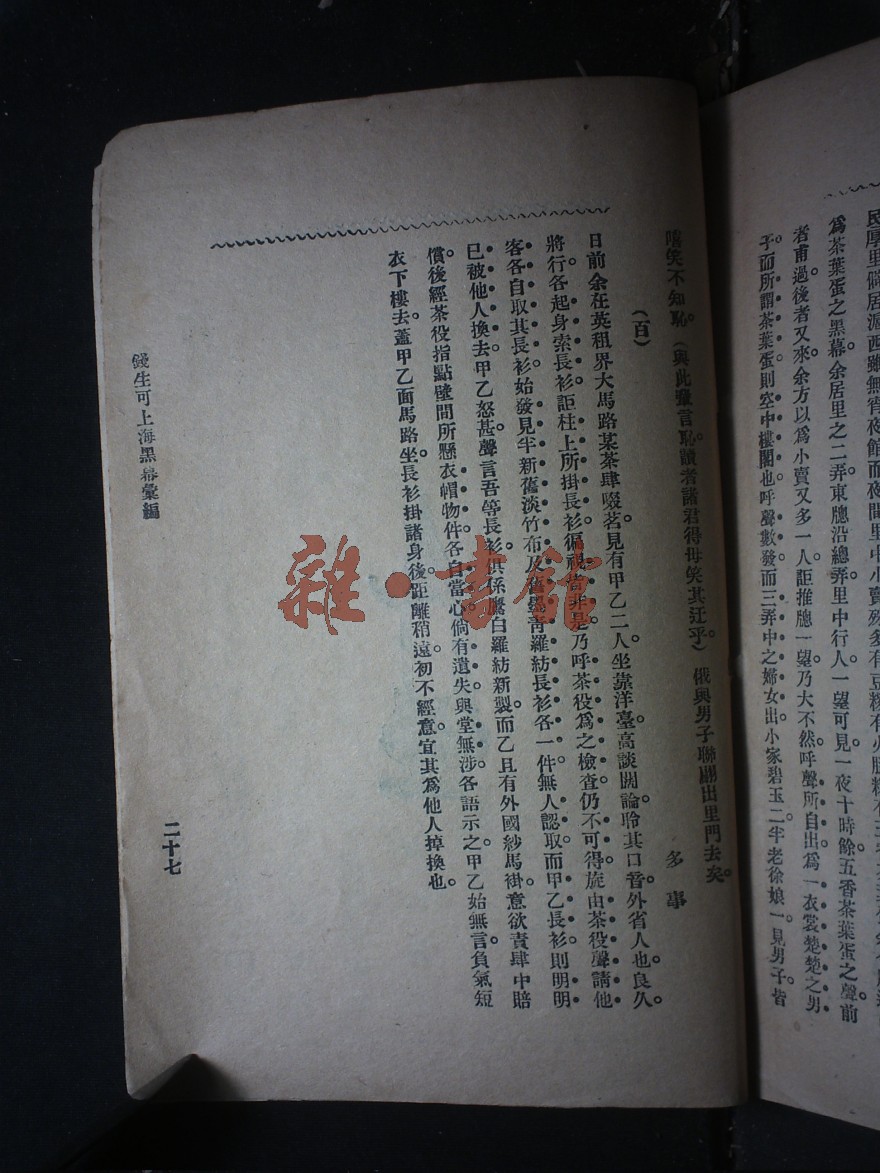 民厚里僻居滬西雖無宵夜館而夜間里中小賣殊多有豆糭有火腿糭有
爲茶葉蛋之黑幕余居里之二弄東牕沿總弄里中行人一望可見一夜十時餘五香茶葉蛋之聲前
者甫過後者又來余方以爲小賣又多一人詎推牕一望乃大不然呼聲所自出爲一衣裳楚楚之男
子而所謂茶葉蛋則空中樓閣也呼聲數發而三弄中之婦女出小家碧玉二半老徐娘一見男子皆
嘻笑不知恥。(與此輩言恥。讀者諸君得毋笑其迂乎。)俄與男子聯翩出里門去矣。
(百) 多事
日前余在英租界大馬路某茶肆啜茗。見有甲乙二人。坐靠洋臺。高談闊論。聆其口音。外省人也。良久。
將行。各起身索長衫。詎柱上所掛長衫。徧視皆非是。乃呼茶役爲之檢查。仍不可得。旋由茶役聲請他
客各自取其長衫。始發見半新舊淡竹布及舊鴉青羅紡長衫各一件。無人認取。而甲乙長衫。則明明
已被他人換去。甲乙怒甚。聲言吾等長衫。俱係鷹白羅紡新製。而乙且有外國紗馬褂。意欲責肆中賠
償。後經茶役指點壁間所懸衣帽物件各自當心。倘有遺失與堂無涉。各語示之。甲乙始無言。負氣短
衣下樓去。蓋甲乙面馬路坐。長衫掛諸身後。距離稍遠。初不經意。宜其爲他人掉換也。
錢生可上海黑幕彙編
二十七
雜·書館